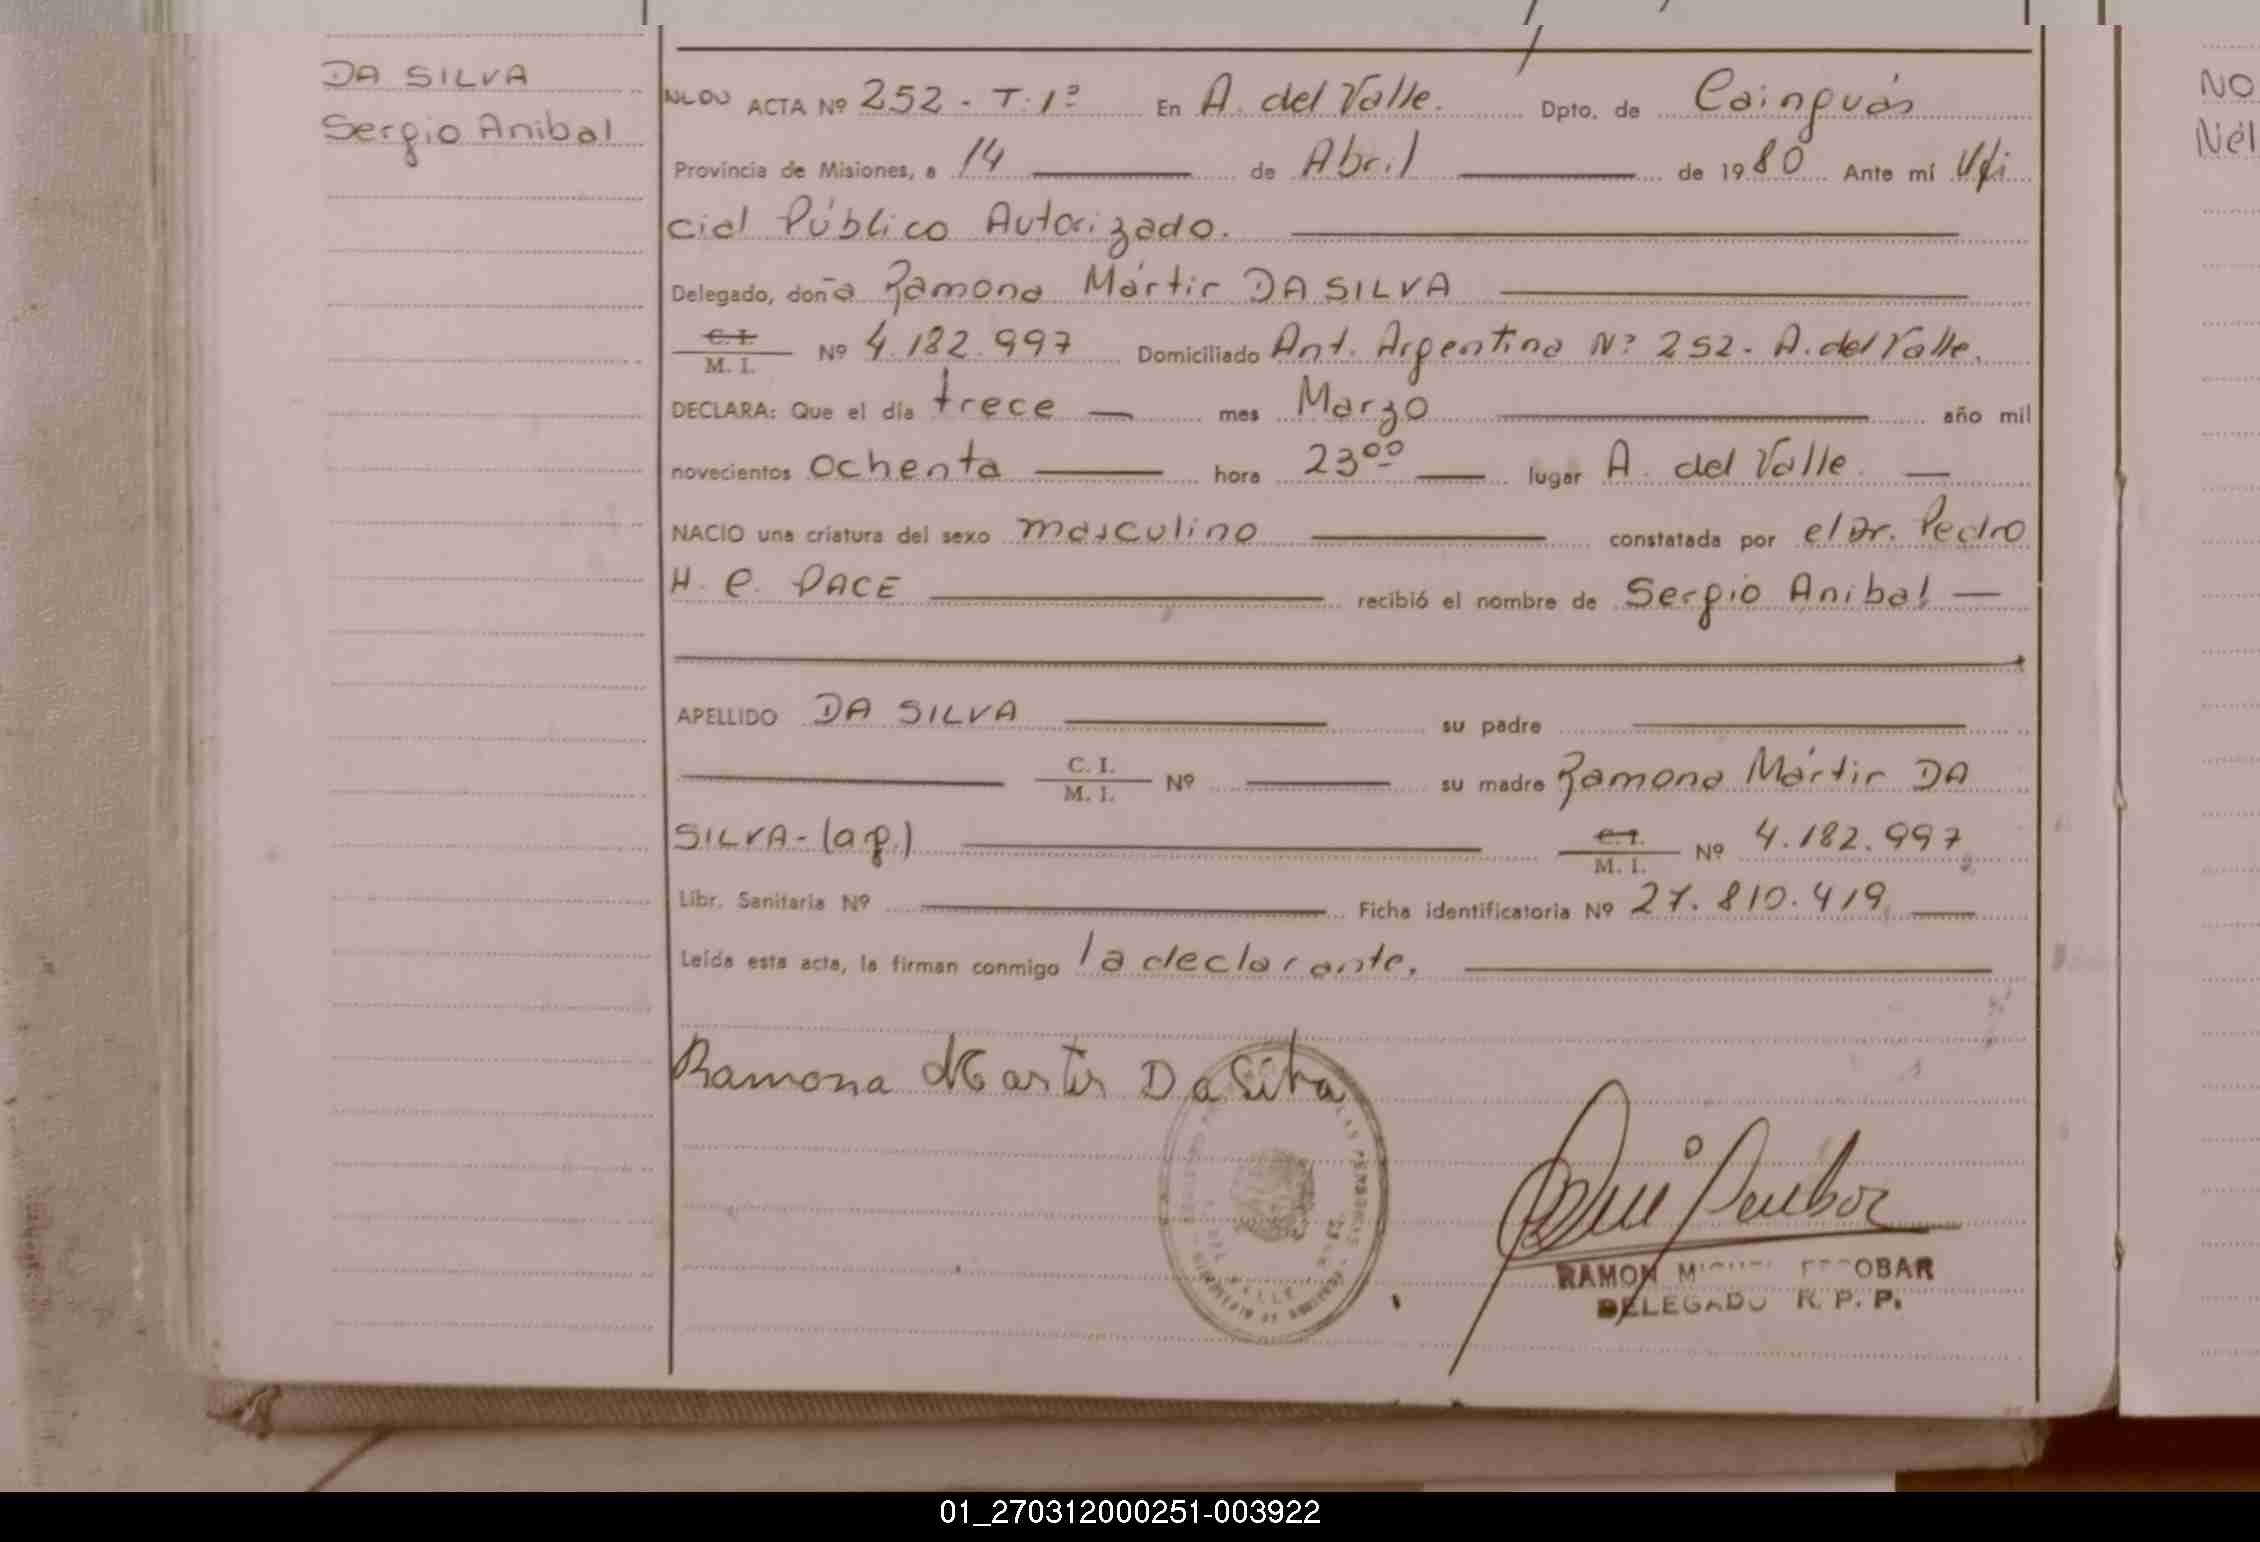 DA SILVA
Sergio Anibal
ACTA Nº 252 - T. 1º En A. del Valle. Dpto. de Cainguás
Provincia de Misiones, a 14 de Abril de 1980 Ante mí Ofi
cial Público Autorizado.
Delegado, doña Ramona Mártir DA SILVA
C. I.
M. I. Nº 4.182.997 Domiciliado Ant. Argentina Nº 252 - A. del Valle.
DECLARA: Que el día trece mes Marzo año mil
novecientos ochenta hora 23⁰⁰ lugar A. del Valle.
NACIO una criatura del sexo masculino constatada por el Dr. Pedro
H. C. PACE recibió el nombre de Sergio Anibal
APELLIDO DA SILVA su padre
C. I.
M. I. Nº su madre Ramona Mártir DA
SILVA - (ap.) C. I.
M. I. Nº 4.182.997
Libr. Sanitaria Nº Ficha identificatoria Nº 27.810.419
Leída esta acta, la firman conmigo la declarante.
Ramona Martir Da Silva
RAMON MIGUEL ESCOBAR
DELEGADO R. P. P.
NO
Nél
01_270312000251-003922